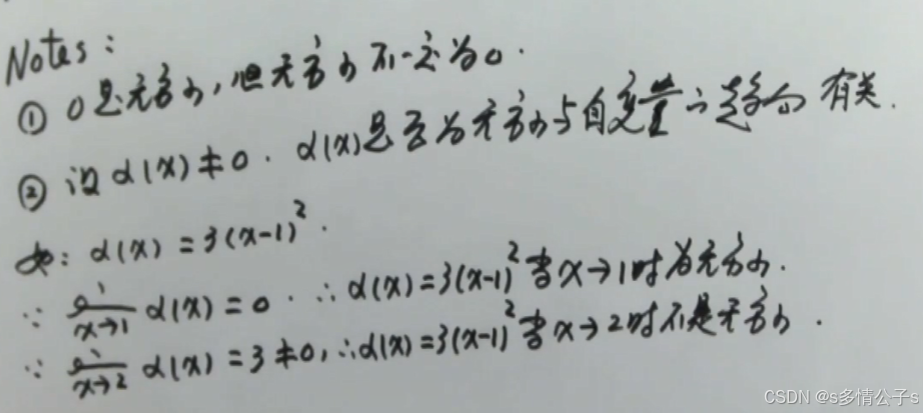 Notes：
① 0是无穷小，但无穷小不一定为0.
② 设 α(x)≠0. α(x)是否为无穷小与自变量的趋向有关.
如：α(x)=3(x-1)².
∵ lim x→1 α(x)=0. ∴ α(x)=3(x-1)²当x→1时为无穷小.
∵ lim x→2 α(x)=3≠0,∴α(x)=3(x-1)²当x→2时不是无穷小.
CSDN @s多情公子s